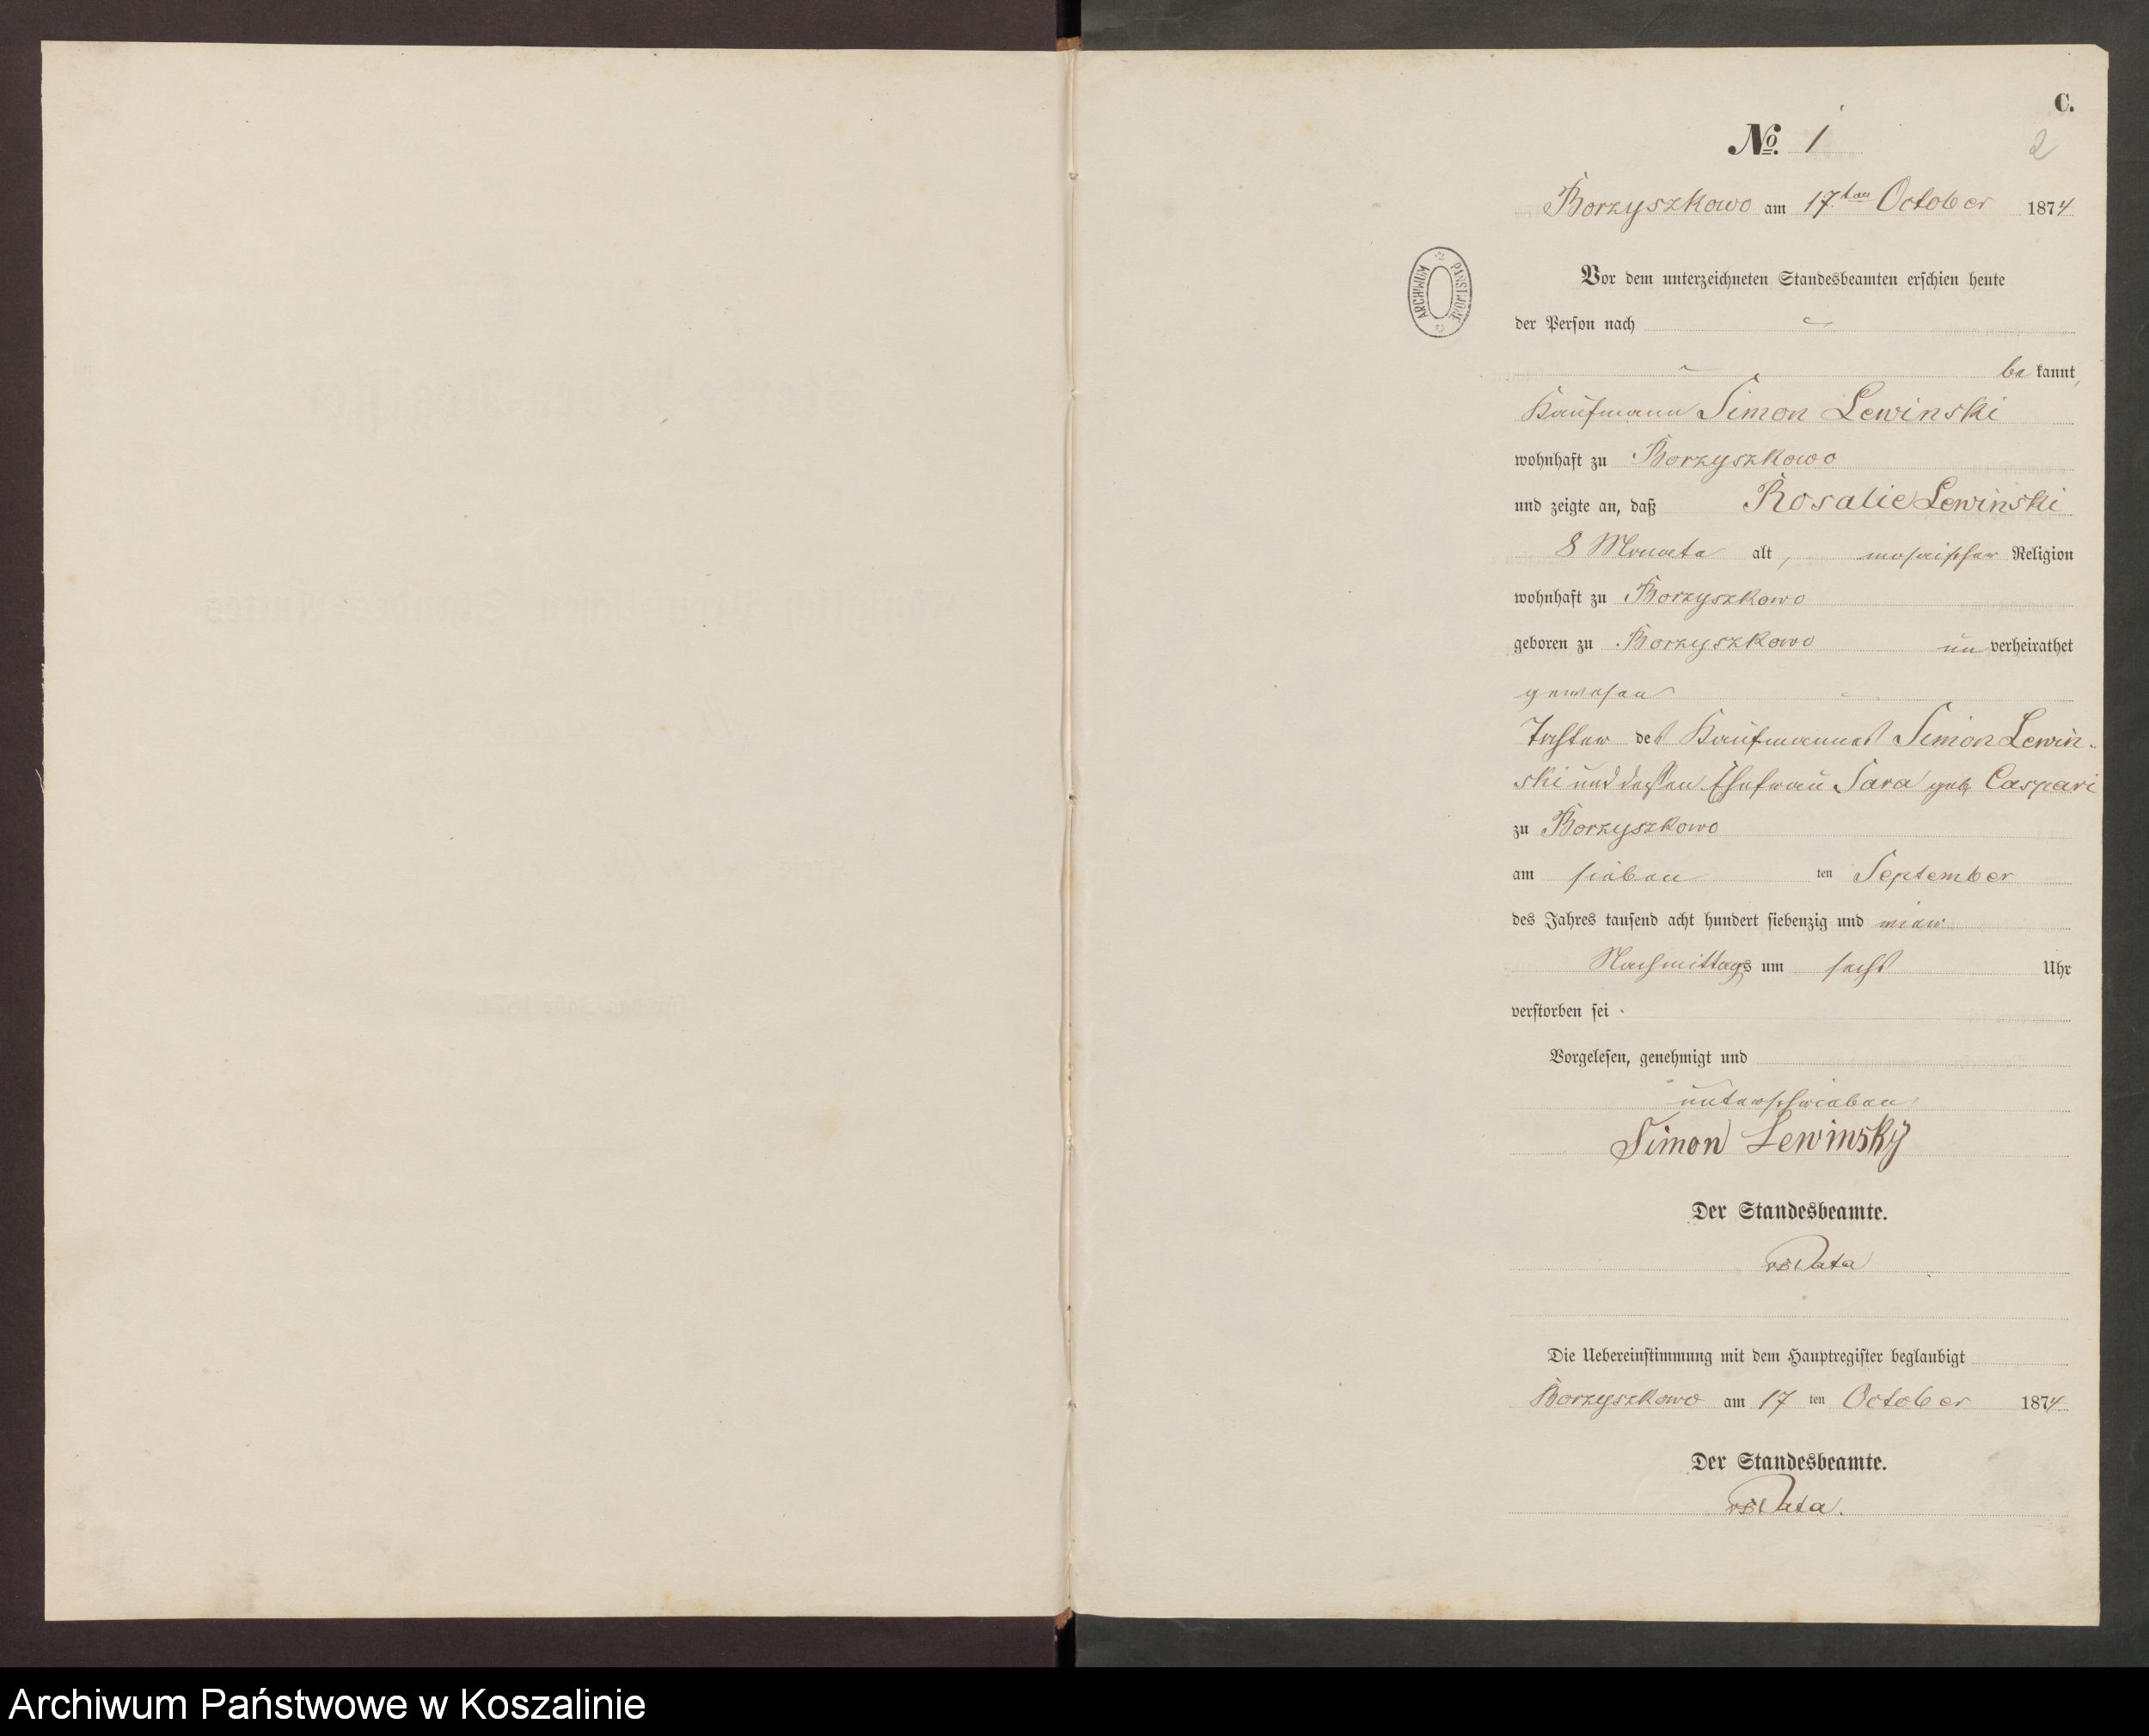 C.
No. 1
2
Borzyszkowo am 17ten October 1874
ARCHIWUM PAŃSTWOWE
Vor dem unterzeichneten Standesbeamten erschien heute
der Person nach
be kannt,
Kaufmann Simon Lewinski
wohnhaft zu Borzyszkowo
und zeigte an, daß Rosalie Lewinski
8 Monate alt, mosaischer Religion
wohnhaft zu Borzyszkowo
geboren zu Borzyszkowo un verheirathet
gewesen
Tochter des Kaufmannes Simon Lewin-
ski und dessen Ehefrau Sara geb. Caspari
zu Borzyszkowo
am sieben ten September
des Jahres tausend acht hundert siebenzig und vier
Nachmittags um sechs Uhr
verstorben sei.
Vorgelesen, genehmigt und
unterschrieben
Simon Lewinsky
Der Standesbeamte.
Die Uebereinstimmung mit dem Hauptregister beglaubigt
Borzyszkowo am 17 ten October 1874
Der Standesbeamte.
Archiwum Państwowe w Koszalinie